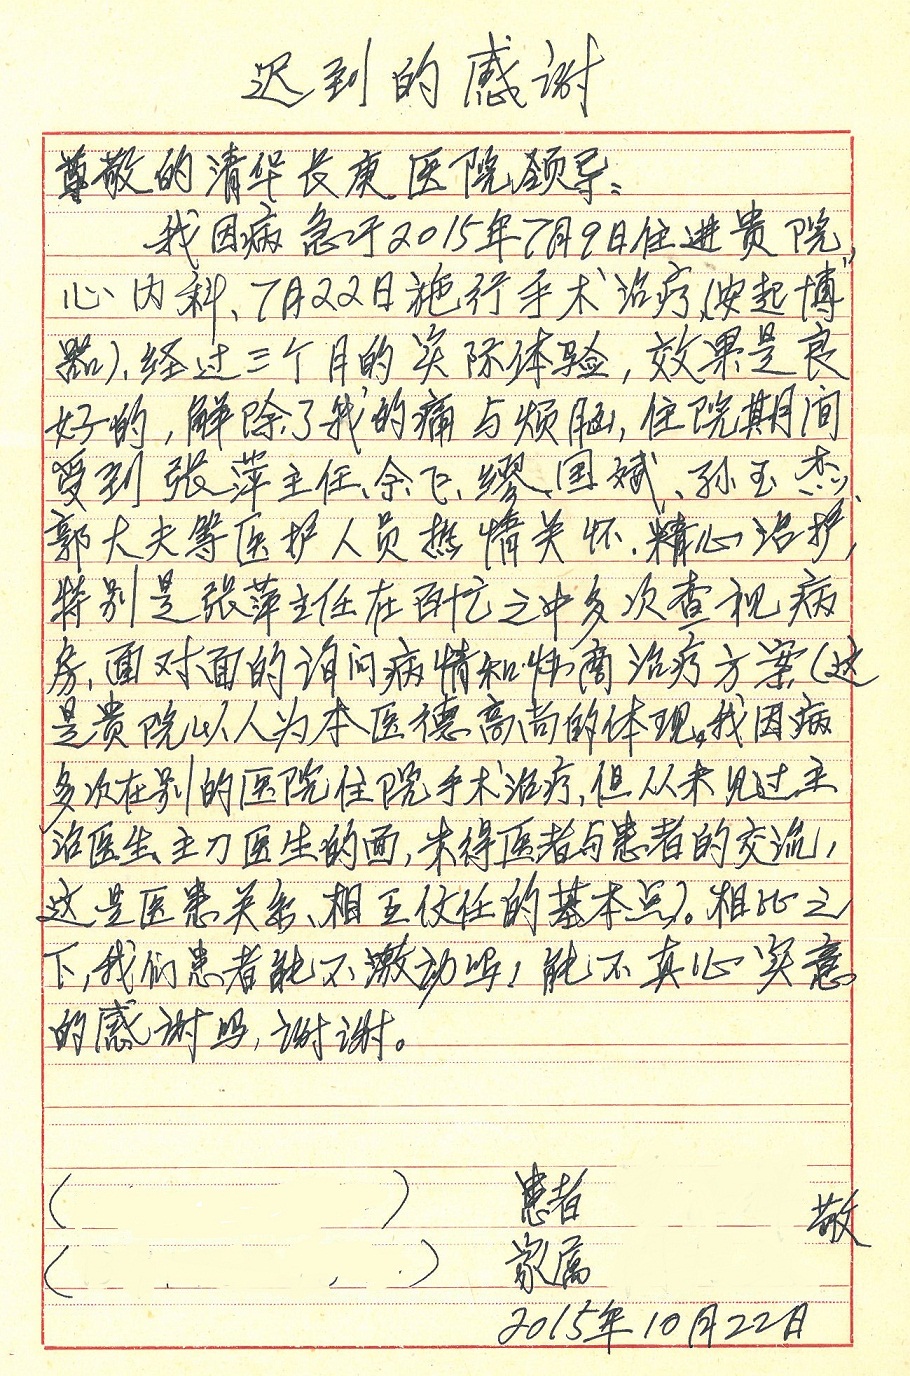 迟到的感谢
尊敬的清华长庚医院领导:
我因病急于2015年7月9日住进贵院
心内科、7月22日施行手术治疗,(安起博
器)、经过三个月的实际体验,效果是良
好的,解除了我的痛与烦脑,住院期间
受到张萍主任、余飞、缪国斌、孙玉杰、
郭大夫等医护人员热情关怀.精心治护,
特别是张萍主任在百忙之中多次查视病
房、面对面的询问病情和协商治疗方案(这
是贵院以人为本医德高尚的体现,我因病
多次在别的医院住院手术治疗,但从未见过主
治医生、主刀医生的面,未得医者与患者的交流,
这是医患关系、相互信任的基本点)。相比之
下,我们患者能不激动吗!能不真心实意
的感谢吗,谢谢。
( ) 患者 敬
( ) 家属
2015年10月22日